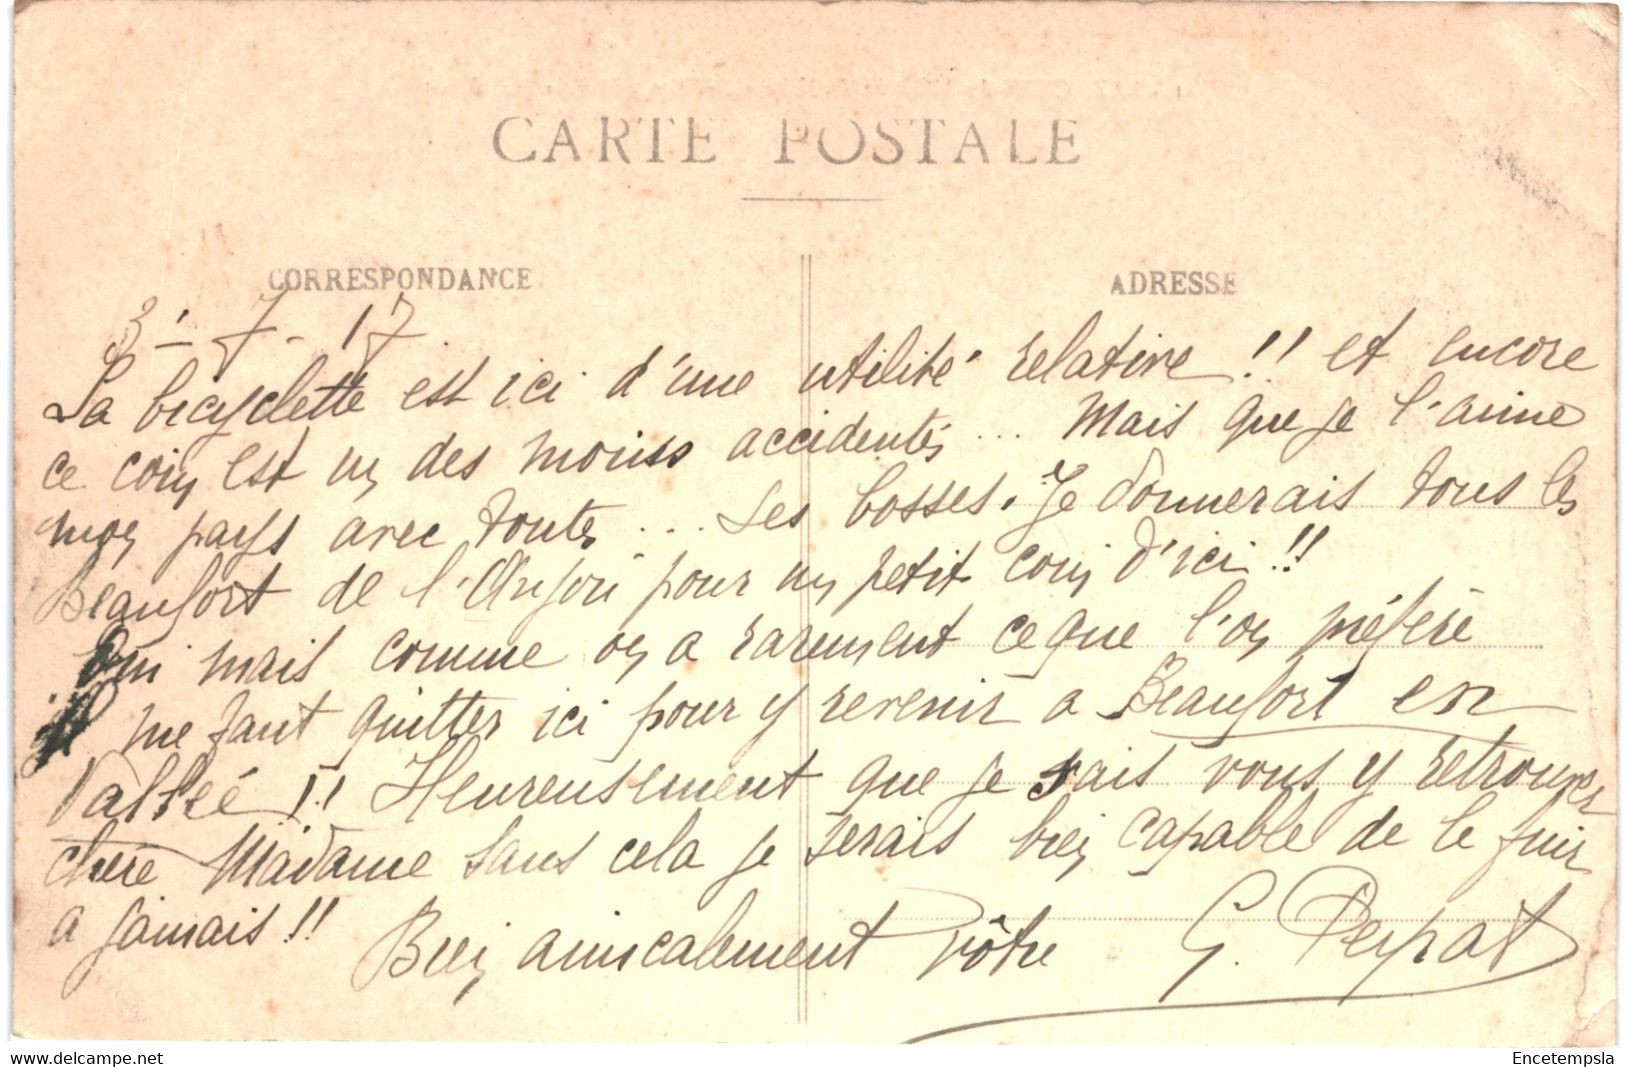 CARTE POSTALE
CORRESPONDANCE
ADRESSE
3-7-17
La bicyclette est ici d'une utilité relative !! et encore
ce coin est un des moins accidentés ... Mais que je l'aime
mon pays avec toutes ... ses bosses. Je donnerais tous les
Beaufort de l'Anjou pour un petit coin d'ici !!
Oui mais comme on a rarement ce que l'on préfère
me faut quitter ici pour y revenir a Beaufort en
Vallée !! Heureusement que je vais vous y retrouver
chère Madame sans cela je serais bien capable de le fuir
a jamais !!
Bien amicalement vôtre G. Peyrat
Encetempsla